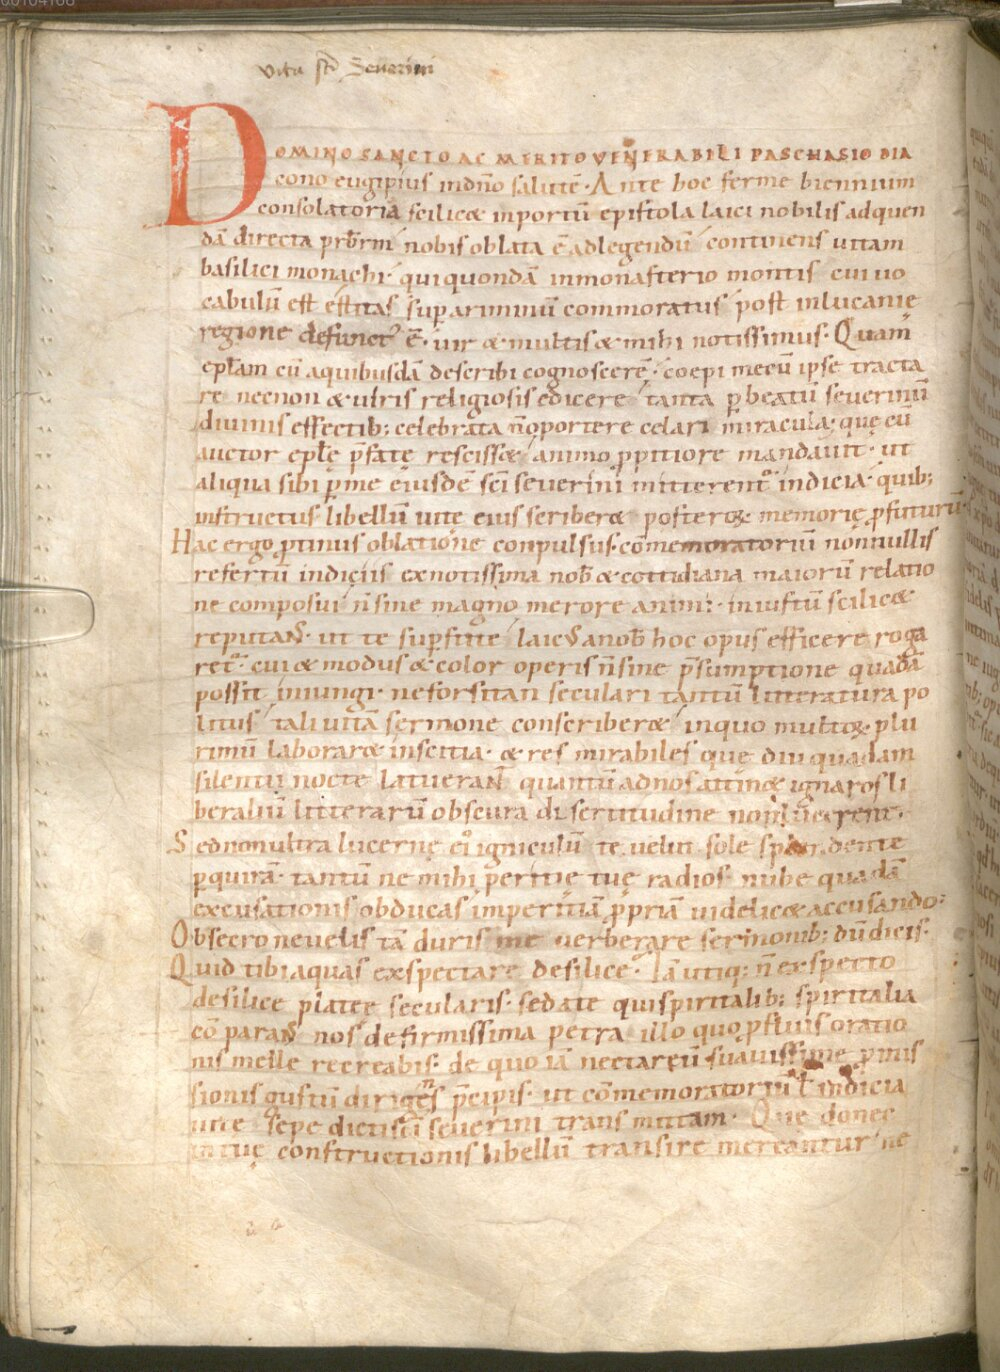 Vita scī Seuerini
DOMINO SANCTO AC MERITO VENERABILI PASCHASIO DIA
cono eugipius indn̄o salutē. Ante hoc ferme biennium
consolatoria scilicet inportū epistola laici nobilis ad quen
dā directa prb̄rm nobis oblata ē ad legendū continens uitam
basilici monachi. qui quondā inmonasterio montis cui uo
cabulū est estitas sup ariminum commoratus post inlucanię
regione defunct' ē. uir & multis & mihi notissimus. Quam
epłam cū a quibusdā describi cognoscerē. coepi mecū ipse tracta
re necnon & uiris religiosis edicere tanta p̲ beatū seuerinū
diuinis effectib; celebrata n̄ oportere celari miracula; quę cū
auctor epłę p̄fatę rescisset animo p̲pitiore mandauit. ut
aliqua sibi p̲ me eiusdē scī seuerini mitterent indicia. quib;
instructus libellū uitę eius scriberet posteroꝝ memorię p̲futurū.
Hac ergo p̲tinus oblatione conpulsus. cōmemoratoriū nonnullis
refertū indiciis ex notissima nob̄ & cottidiana maiorū relatio
ne composui n̄ sine magno merore animi. iniustū scilicet
reputans. ut te sup̲stite laic' a nob̄ hoc opus efficere roga
ret. cui & modus & color operis n̄ sine p̄sumptione quadā
possit iniungi. ne forsitan seculari tantū litteratura po
litus tali uitā sermone conscriberet inquo multoꝝ plu
rimū laboraret inscitia. & res mirabiles quę diu quadam
silentii nocte latuerant quantū adnos attinet ignaros li
beraliū litterarū obscura disertitudine non lucerent.
Sed non ultra lucernę ei' igniculū te uelut sole splendente
p̲quirā. tantū ne mihi peritię tuę radios nube quadā
excusationis obducas imperitiā p̲priā uidelicet accusando:
Obsecro neuelis tā duris me uerberare sermonib; dū dicis.
Quid tibi aquas exspectare desilice. Iā utiq; n̄ exspecto
desilice plateę secularis. sed a te qui spiritalib; spiritalia
cō parans nos de firmissima petra illo quo p̲fluis oratio
nis melle recreabis. de quo iā nectareū suauissime p̲mis
sionis gustū dirigens p̄cipis. ut cōmemoratoriū ł indicia
uitę sepe dicti scī seuerini transmittam. Quę donec
in tuę constructionis libellū transire mereantur ne